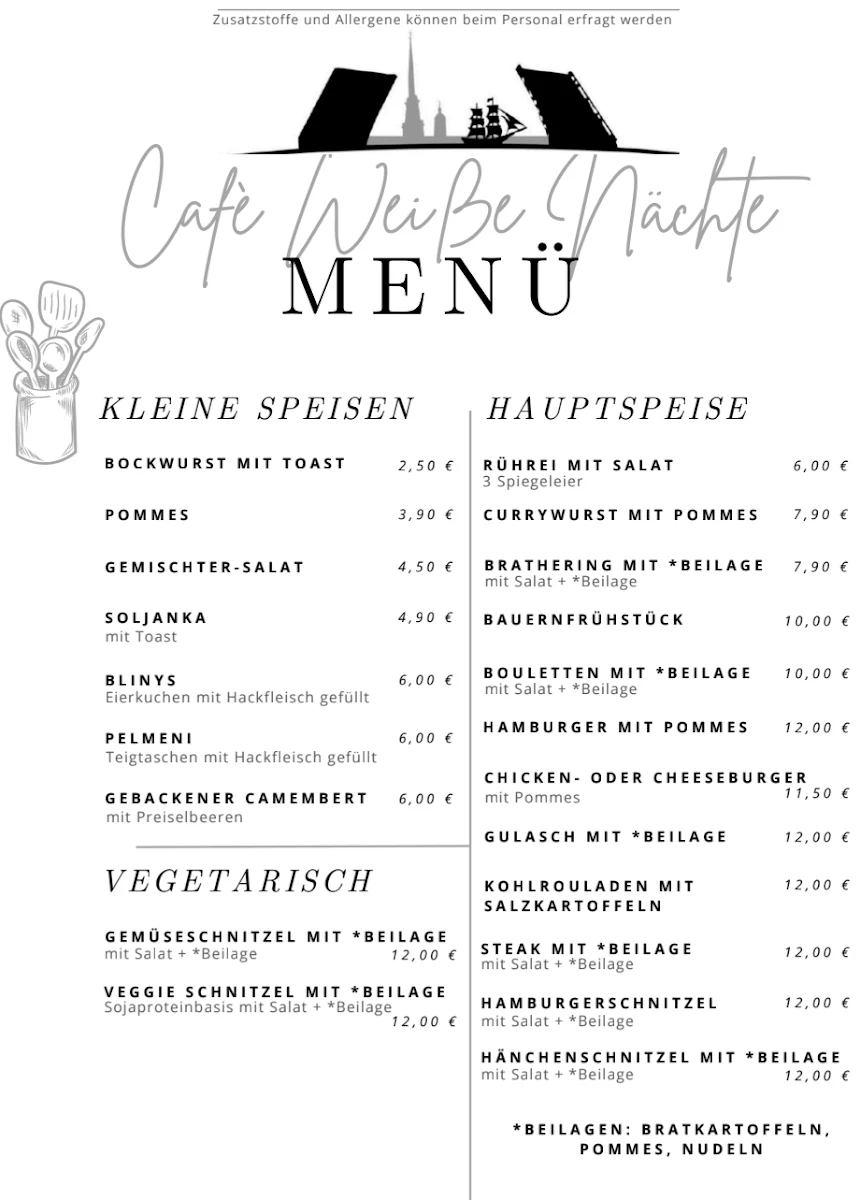 Zusatzstoffe und Allergene können beim Personal erfragt werden
Cafè Weiße Nächte
MENÜ
KLEINE SPEISEN
BOCKWURST MIT TOAST 2,50 €
POMMES 3,90 €
GEMISCHTER-SALAT 4,50 €
SOLJANKA 4,90 €
mit Toast
BLINYS 6,00 €
Eierkuchen mit Hackfleisch gefüllt
PELMENI 6,00 €
Teigtaschen mit Hackfleisch gefüllt
GEBACKENER CAMEMBERT 6,00 €
mit Preiselbeeren
VEGETARISCH
GEMÜSESCHNITZEL MIT *BEILAGE
mit Salat + *Beilage 12,00 €
VEGGIE SCHNITZEL MIT *BEILAGE
Sojaproteinbasis mit Salat + *Beilage
12,00 €
HAUPTSPEISE
RÜHREI MIT SALAT 6,00 €
3 Spiegeleier
CURRYWURST MIT POMMES 7,90 €
BRATHERING MIT *BEILAGE 7,90 €
mit Salat + *Beilage
BAUERNFRÜHSTÜCK 10,00 €
BOULETTEN MIT *BEILAGE 10,00 €
mit Salat + *Beilage
HAMBURGER MIT POMMES 12,00 €
CHICKEN- ODER CHEESEBURGER
mit Pommes 11,50 €
GULASCH MIT *BEILAGE 12,00 €
KOHLROULADEN MIT 12,00 €
SALZKARTOFFELN
STEAK MIT *BEILAGE 12,00 €
mit Salat + *Beilage
HAMBURGERSCHNITZEL 12,00 €
mit Salat + *Beilage
HÄNCHENSCHNITZEL MIT *BEILAGE
mit Salat + *Beilage 12,00 €
*BEILAGEN: BRATKARTOFFELN,
POMMES, NUDELN